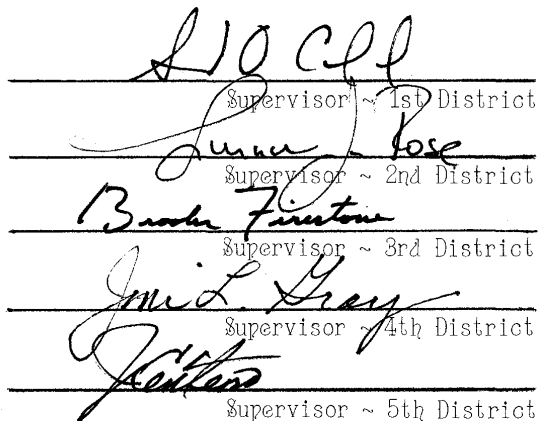 Supervisor ~ 1st District
J. Rose
Supervisor ~ 2nd District
Brooks Firestone
Supervisor ~ 3rd District
Joni L. Gray
Supervisor ~ 4th District
J Centeno
Supervisor ~ 5th District